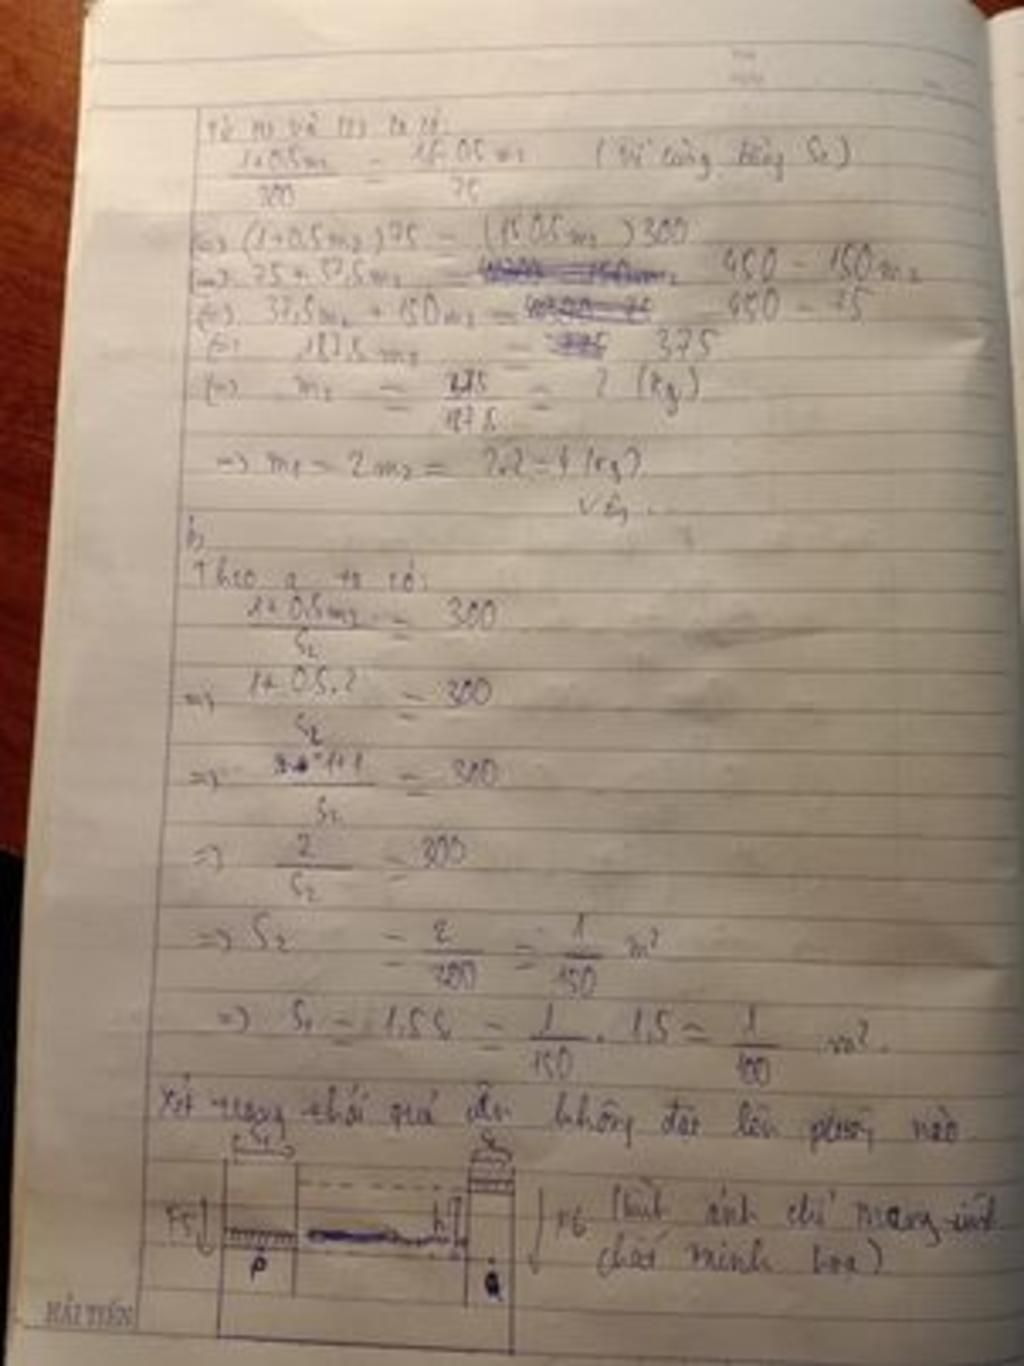 Từ (1) và (2) ta có:
(1+0,5m₂)/300 = (1,5-0,5m₂)/75 (Vì cùng bằng S₂)
<=> (1+0,5m₂)75 = (1,5-0,5m₂)300
<=> 75 + 37,5m₂ = 450 - 150m₂
<=> 37,5m₂ + 150m₂ = 450 - 75
<=> 187,5m₂ = 375
<=> m₂ = 375/187,5 = 2 (kg)
=> m₁ = 2m₂ = 2.2 = 4 (kg)
Vậy...
b,
Theo a ta có:
(1+0,5m₂)/S₂ = 300
=> (1+0,5.2)/S₂ = 300
=> (1+1)/S₂ = 300
=> 2/S₂ = 300
=> S₂ = 2/300 = 1/150 m²
=> S₁ = 1,5S₂ = 1/150 . 1,5 = 1/100 m².
Xét trạng thái quả cân không đặt lên pittông nào
S₁ S₂
P₅ h P₆ (hình ảnh chỉ mang tính
P Q chất minh hoạ)
HẢI TIẾN